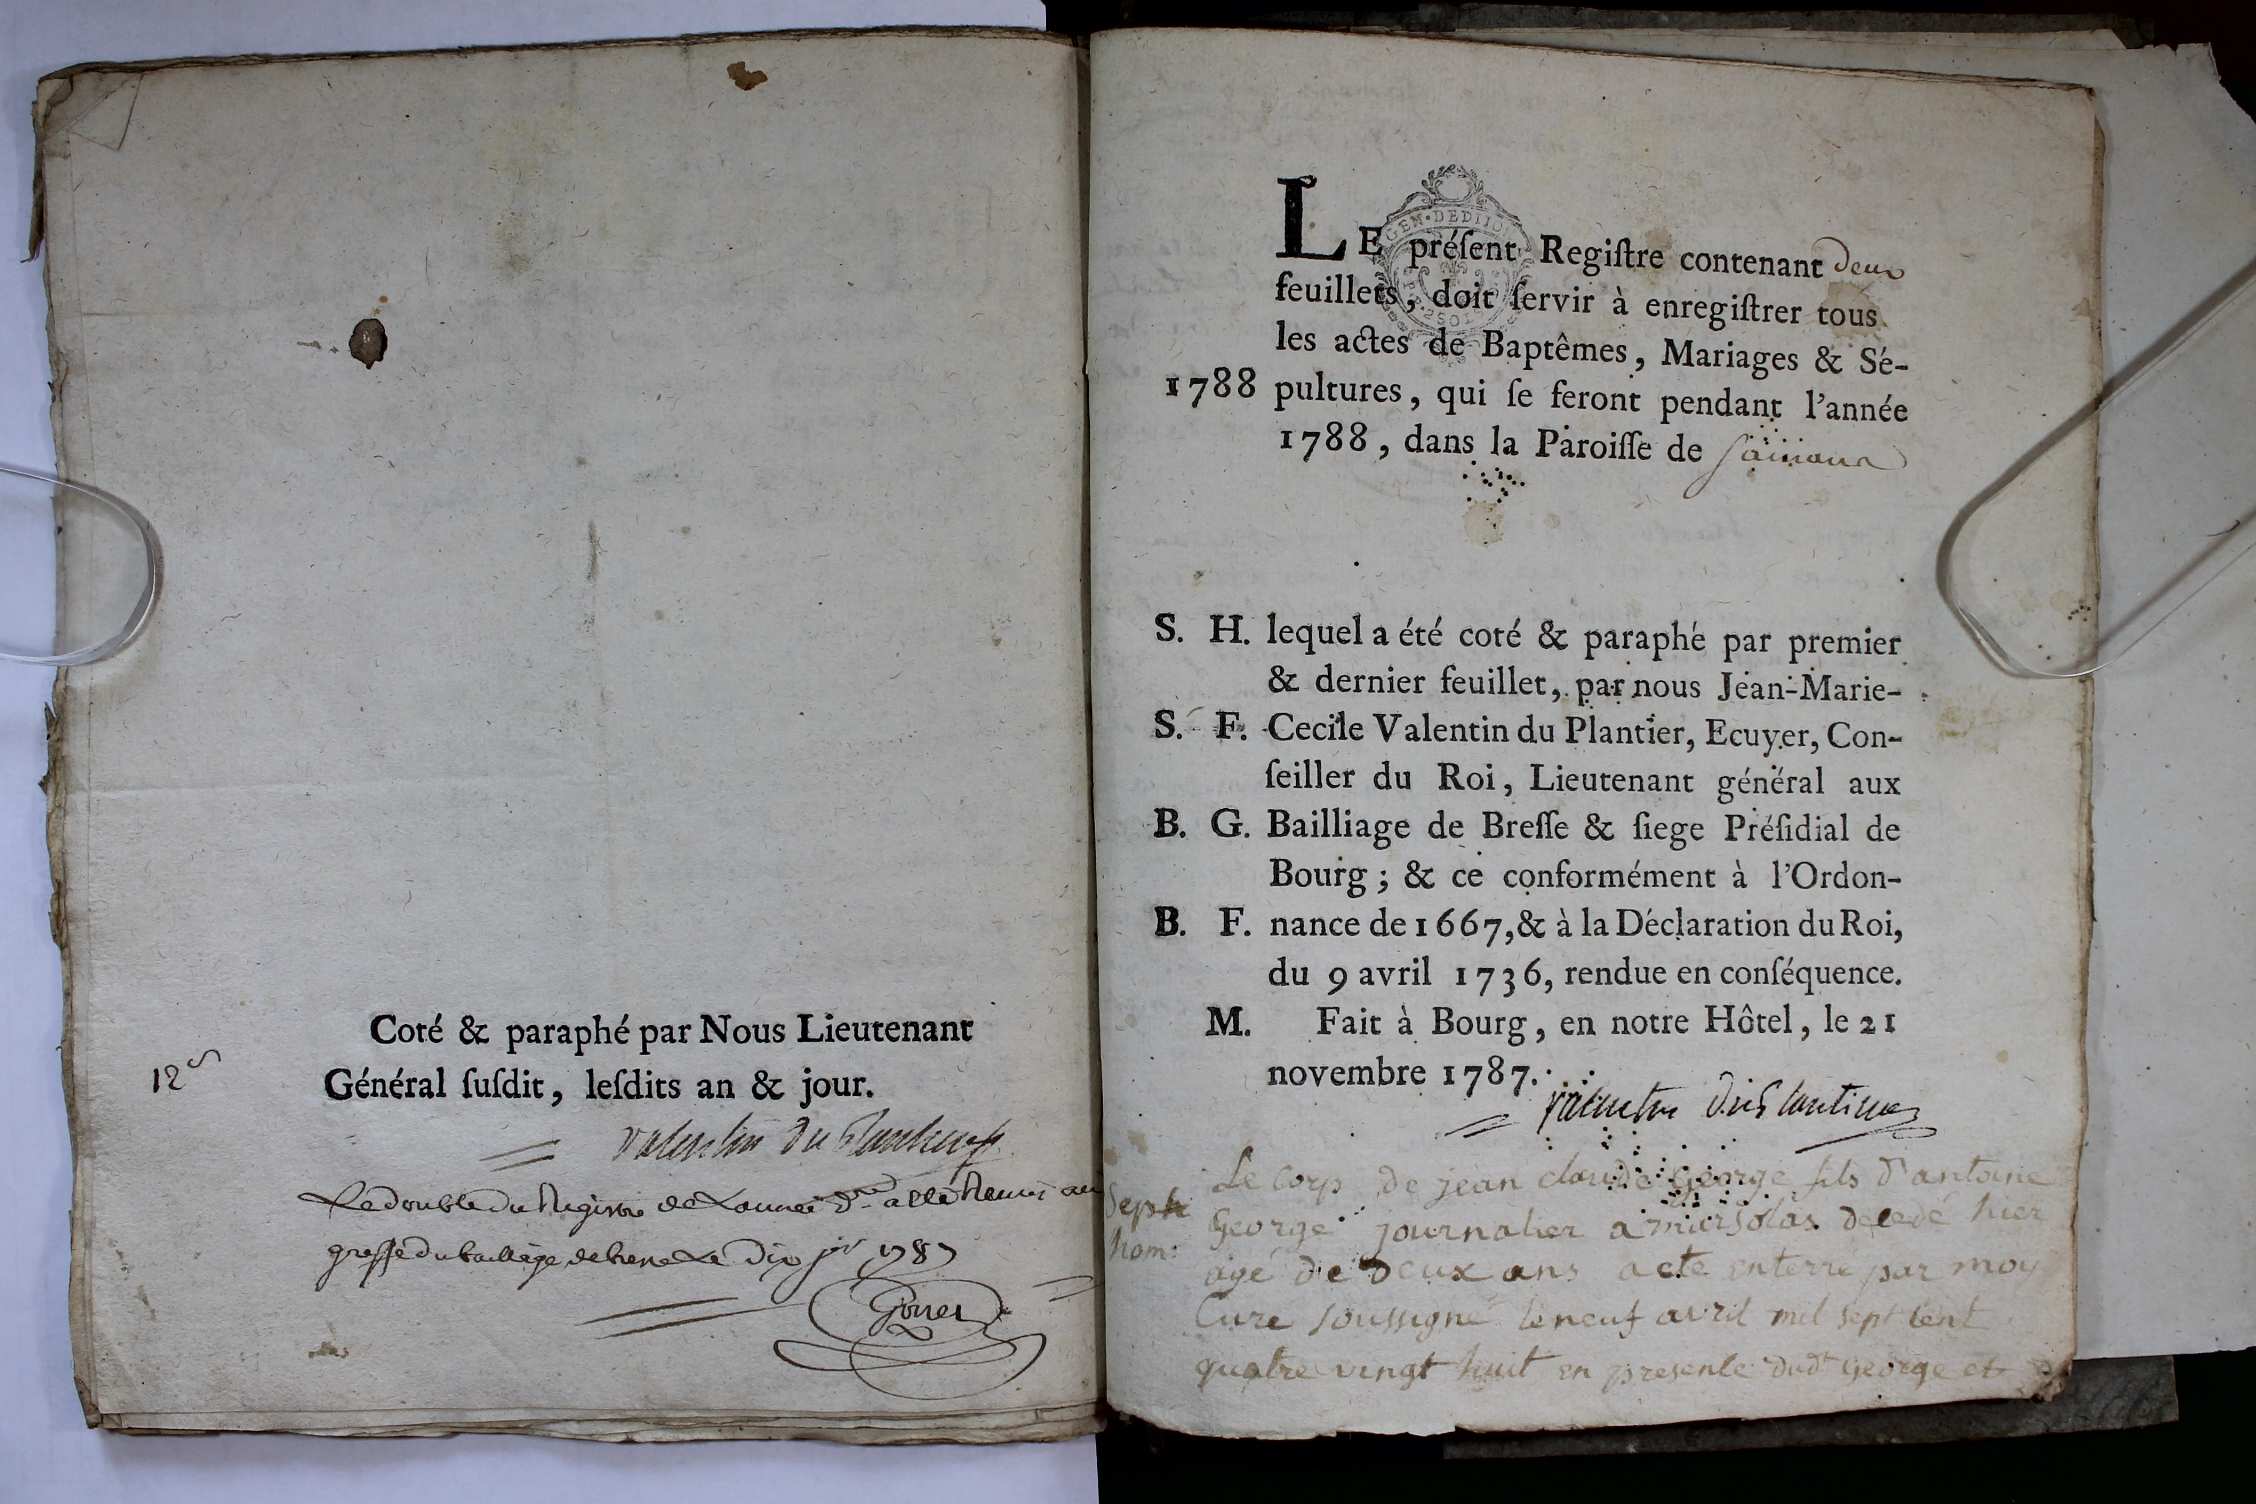 Coté & paraphé par Nous Lieutenant
Général ſuſdit, leſdits an & jour.
12
Valentin Du Plantier
Le double du Registre de L'année
greffe du bailliage de bresse Le Dix 1787
LE préſent Regiſtre contenant deux
feuillets, doit ſervir à enregiſtrer tous
les actes de Baptêmes, Mariages & Sé-
1788 pultures, qui ſe feront pendant l'année
1788, dans la Paroiſſe de
S. H. lequel a été coté & paraphé par premier
& dernier feuillet, par nous Jean-Marie-
S. F. Cecile Valentin du Plantier, Ecuyer, Con-
ſeiller du Roi, Lieutenant général aux
B. G. Bailliage de Breſſe & ſiege Préſidial de
Bourg ; & ce conformément à l'Ordon-
B. F. nance de 1667, & à la Déclaration du Roi,
du 9 avril 1736, rendue en conſéquence.
M. Fait à Bourg, en notre Hôtel, le 21
novembre 1787.
Valentin DuPlantier
Le corp de jean claude George fils d'antoine
Sept
George journalier a decedé hier
hom:
agé de Deux ans a ete enterré par moy
Curé soussigné le neuf avril mil sept cent
quatre vingt huit en presence dudt George et